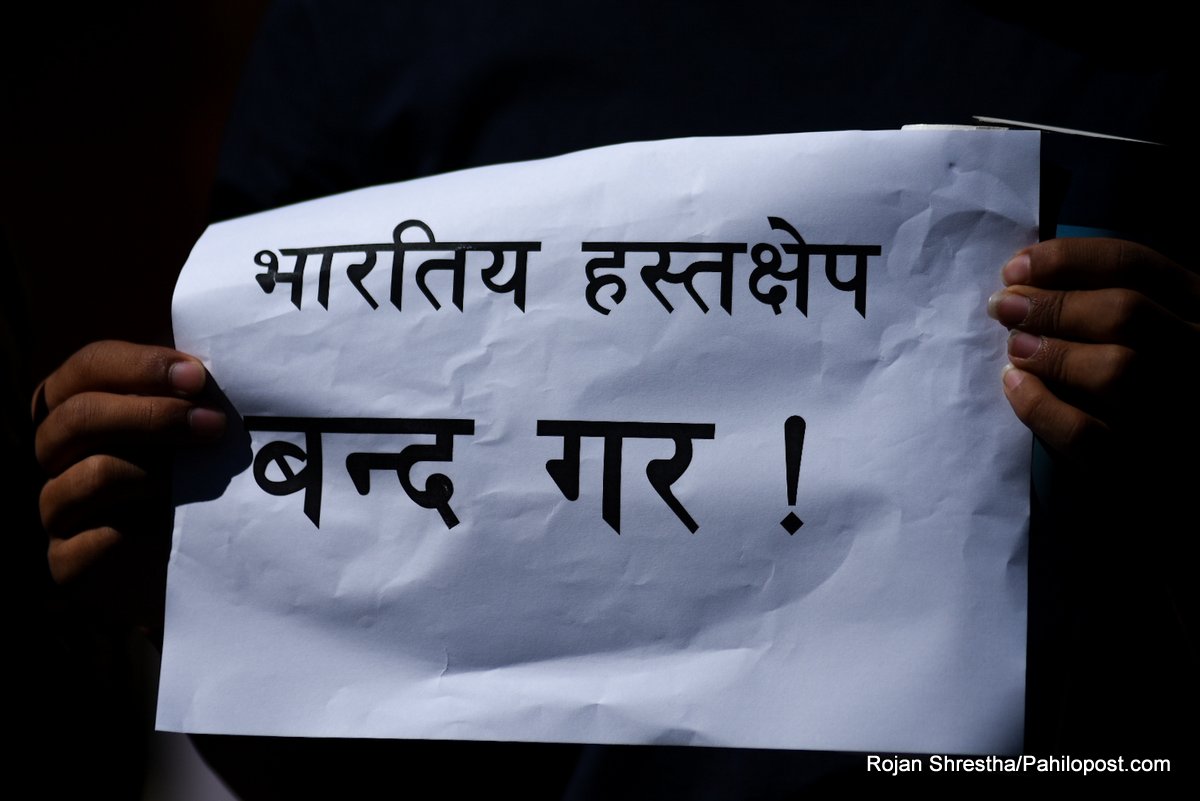 भारतिय हस्तक्षेप
बन्द गर !
Rojan Shrestha/Pahilopost.com